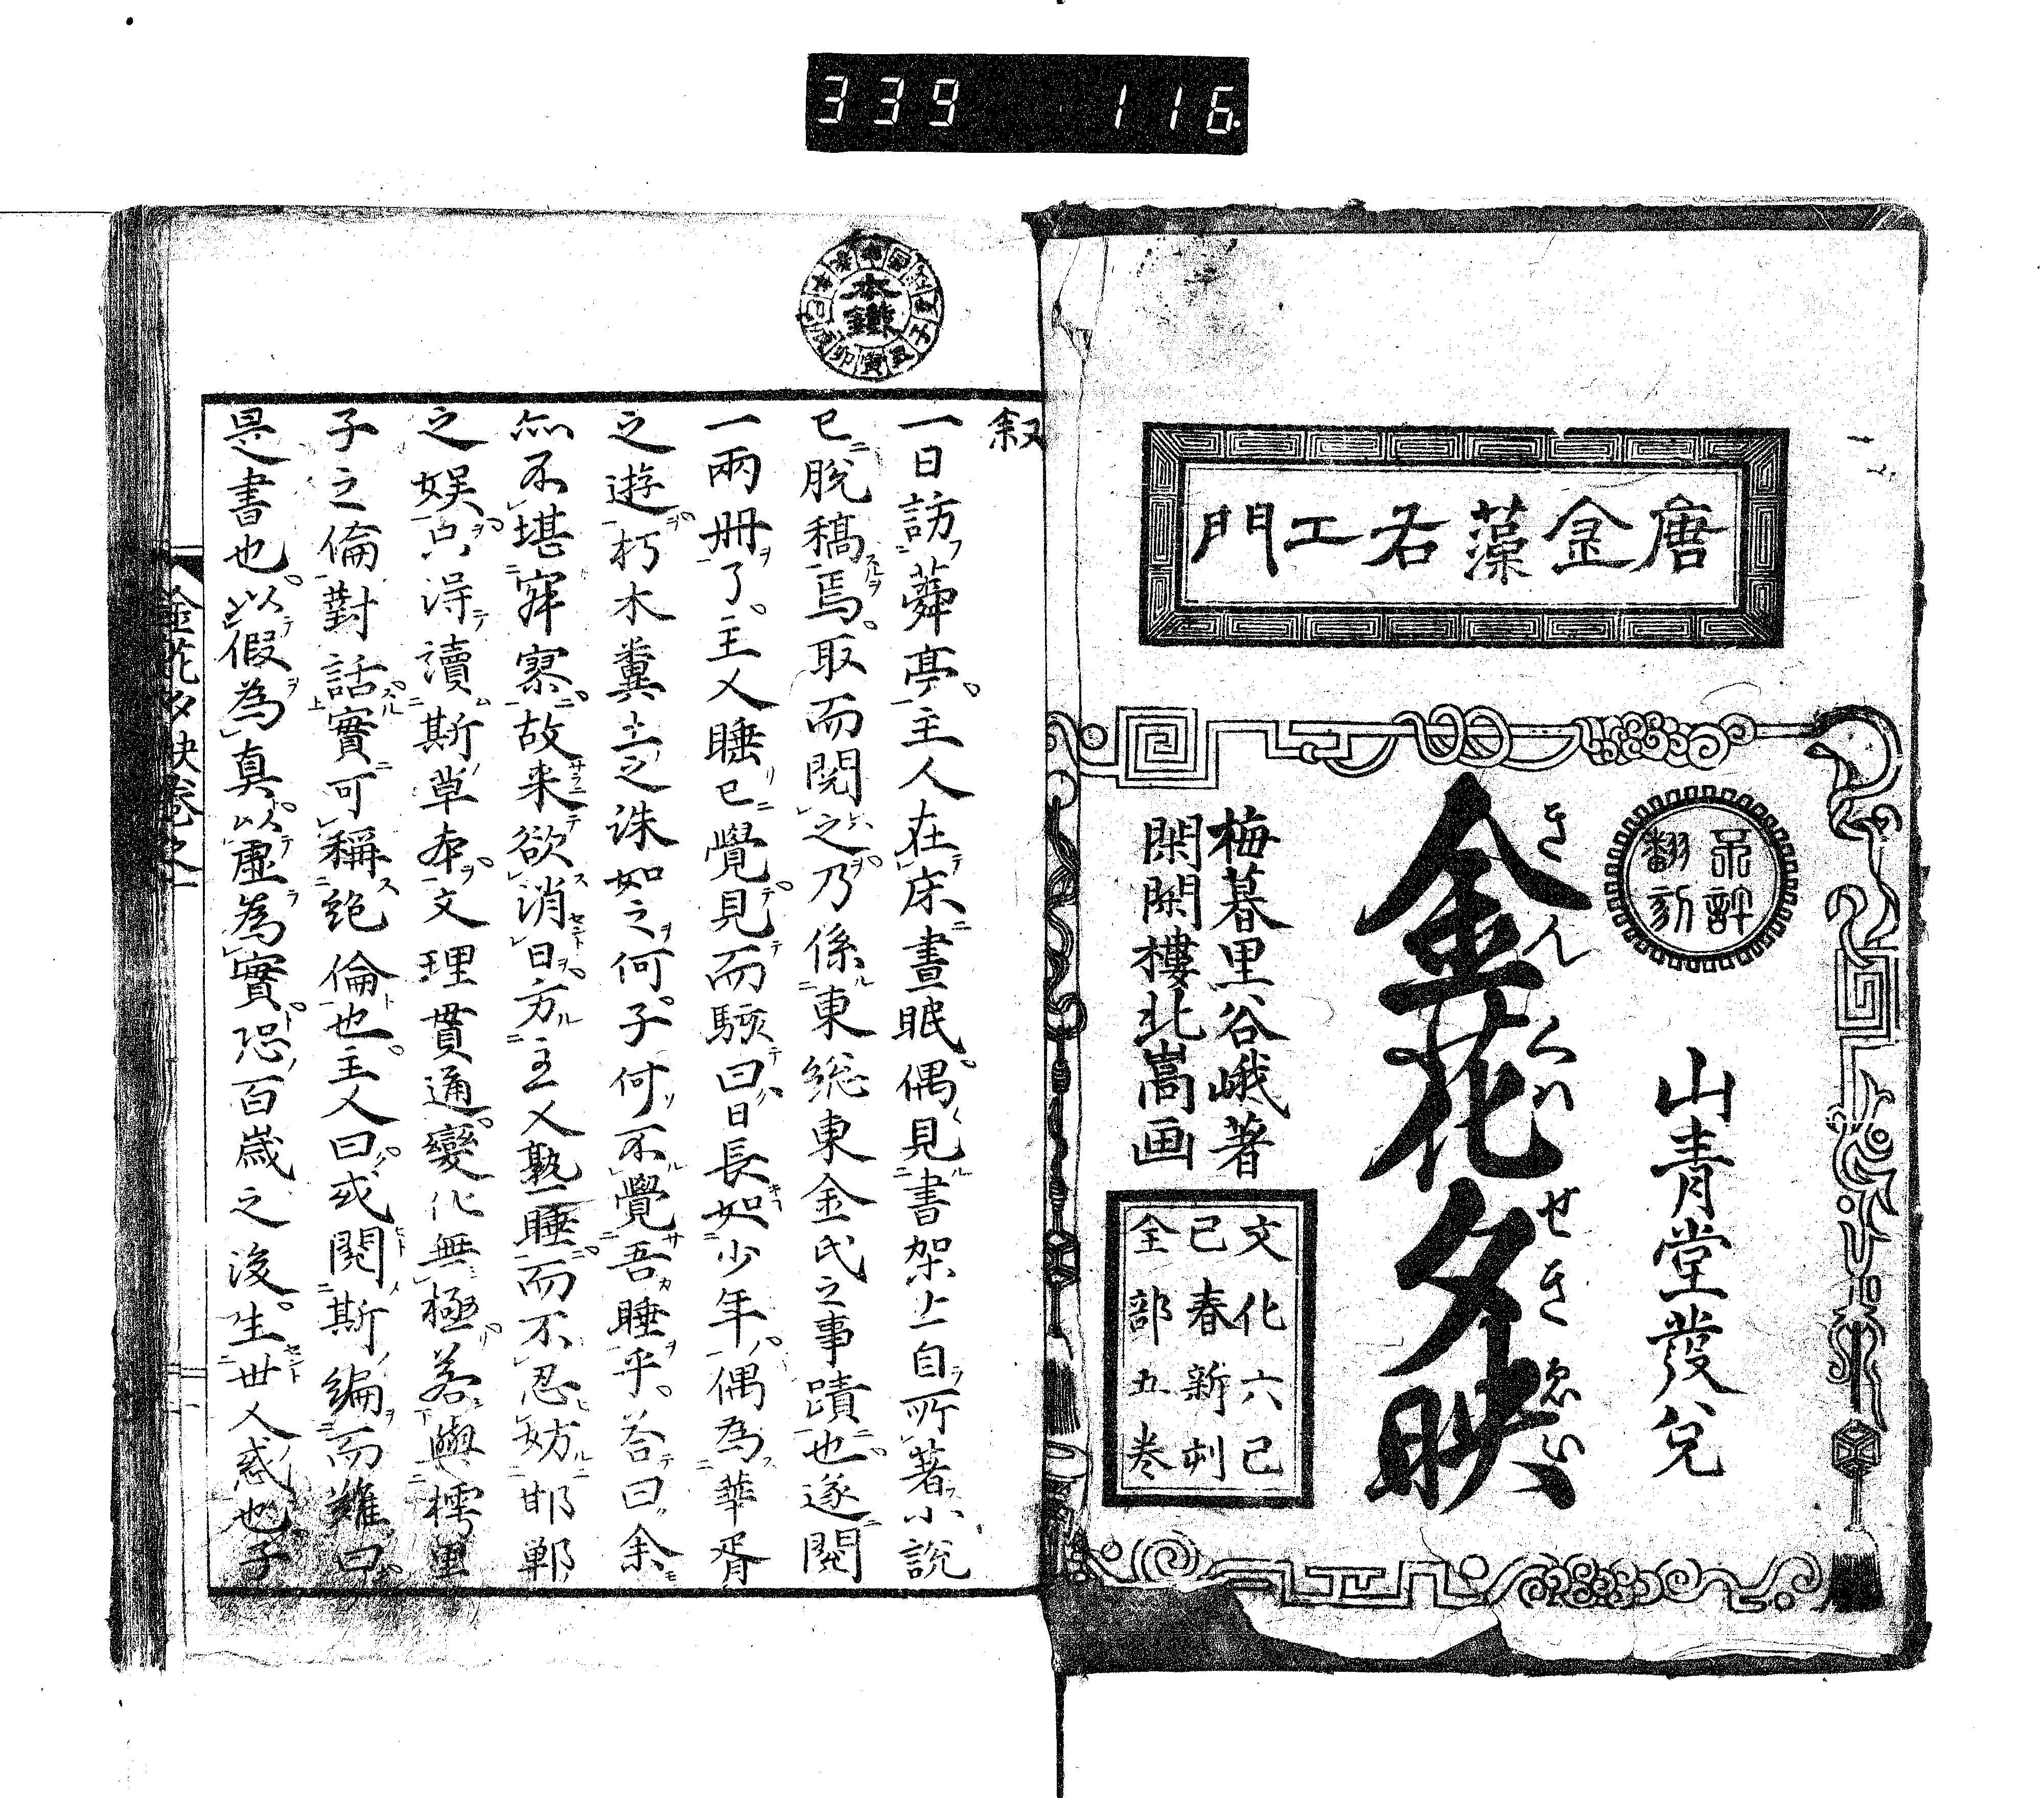 339 116
唐金藻右エ門
不許
翻刻
山青堂發兌
きんくハせきゑい
金花夕映
梅暮里谷峨著
閑閑樓北嵩画
文化六己
己春新刻
全部五卷
叙
一日訪蕣亭。主人在床晝眠。偶見書架上自所著小説
已脱稿焉。取而閲之。乃係東総東金氏之事蹟也。遂閲
一兩冊了。主人睡已覺。見而駭曰。日長如少年。偶為華胥
之遊。朽木糞土之誅如之何。子何不覺吾睡乎。答曰。余
亦不堪寂寥。故来欲消日。方主人熟睡。而不忍妨邯鄲
之娯。只得讀斯草本。文理貫通。變化無極。若與樗里
子之倫對話。實可稱絶倫也。主人曰。或閲斯編而難曰。
是書也。以假為真。以虚為實。恐百歳之後。生世人惑也。子
金花夕映卷之一